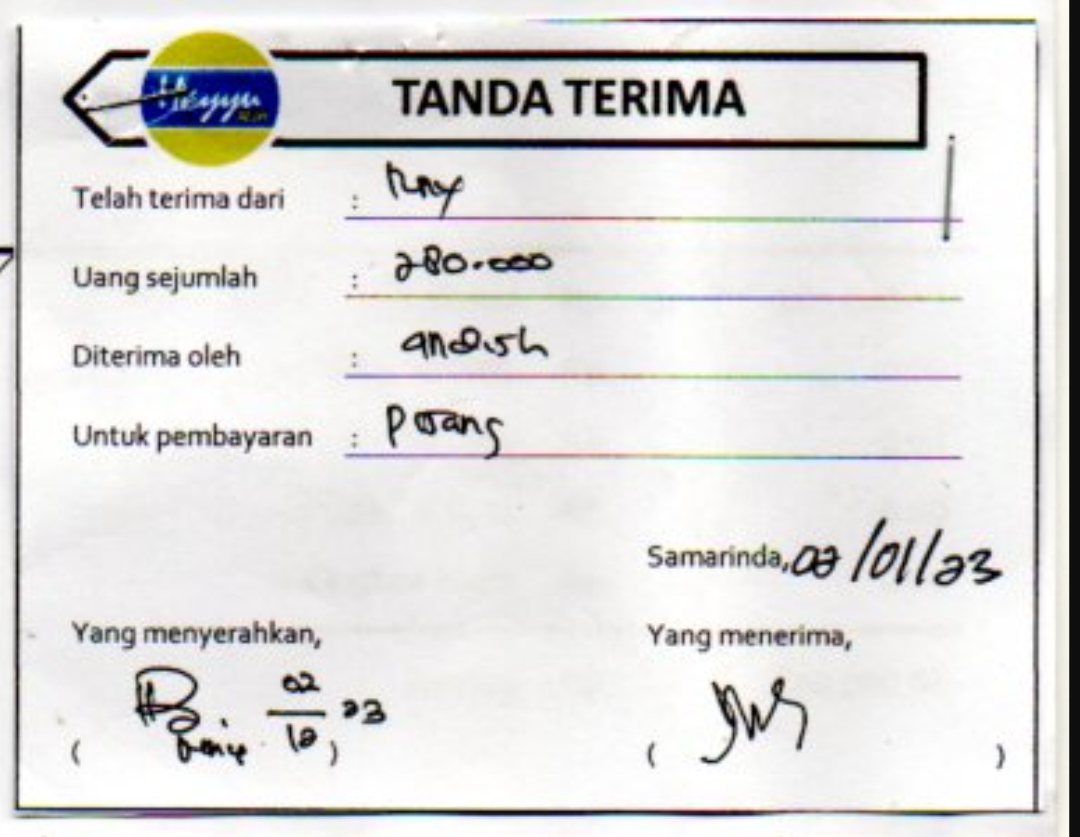 TANDA TERIMA
Telah terima dari :
Uang sejumlah : 280.000
Diterima oleh : andish
Untuk pembayaran :
Samarinda, 02/01/23
Yang menyerahkan,
Yang menerima,
02
23
12
( )
( )